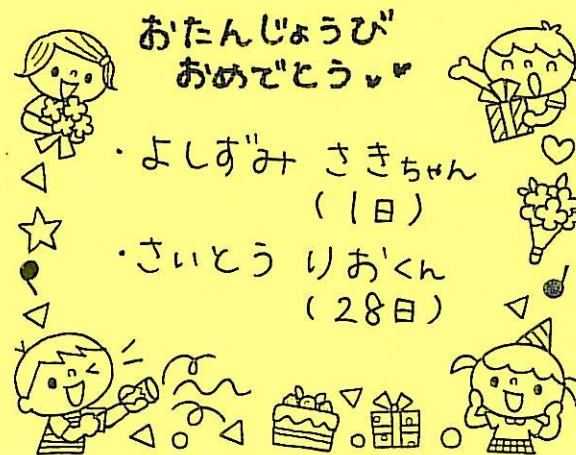 おたんじょうび
おめでとう♥♥
・よしずみ さきちゃん
(1日)
・さいとう りおくん
(28日)